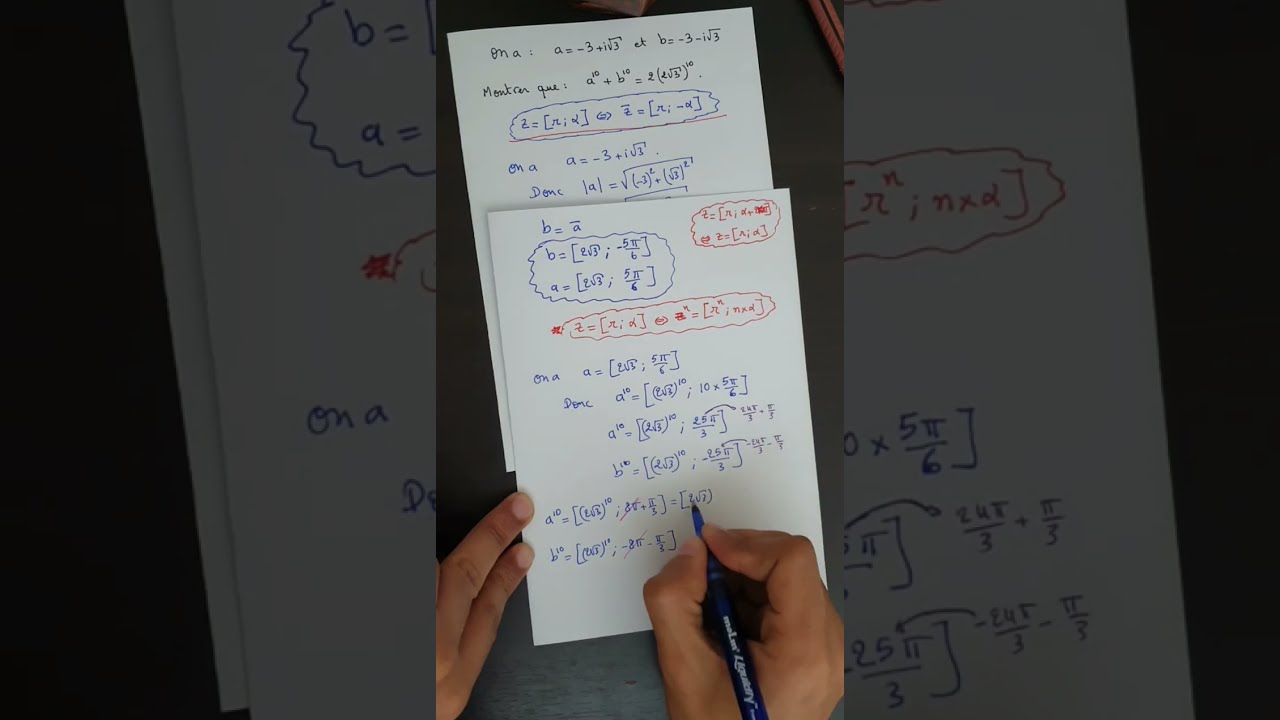 On a : a = -3 + i√3 et b = -3 - i√3
Montrer que : a¹⁰ + b¹⁰ = 2(2√3)¹⁰.
z = [r; α] ⇔ z̄ = [r; -α]
On a a = -3 + i√3.
Donc |a| = √((-3)² + (√3)²)
b = ā
z = [r; α +
⇔ z = [r; α]
b = [2√3 ; -5π/6]
a = [2√3 ; 5π/6]
z = [r; α] ⇔ zⁿ = [rⁿ; n×α]
On a a = [2√3 ; 5π/6]
Donc a¹⁰ = [(2√3)¹⁰ ; 10 × 5π/6]
a¹⁰ = [(2√3)¹⁰ ; 25π/3] 24π/3 + π/3
b¹⁰ = [(2√3)¹⁰ ; -25π/3] -24π/3 - π/3
a¹⁰ = [(2√3)¹⁰ ; 8π + π/3] = [2√3)
b¹⁰ = [(2√3)¹⁰ ; -8π - π/3]
b = [
a =
On a
rⁿ ; n×α]
5π/6]
24π/3 + π/3
25π/3] -24π/3 - π/3